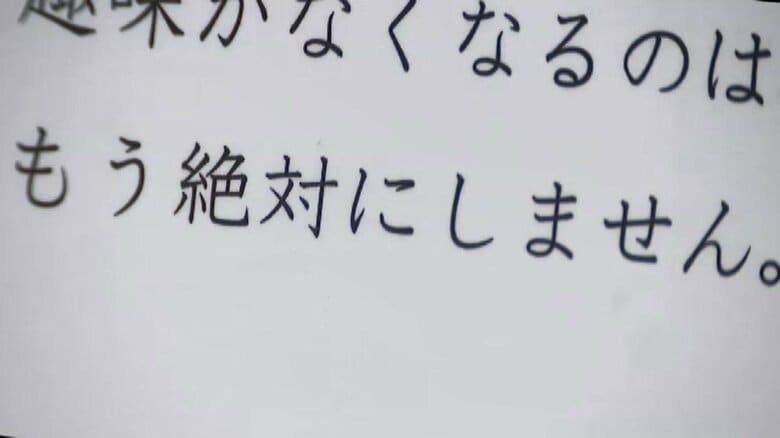 趣味がなくなるのは
もう絶対にしません。